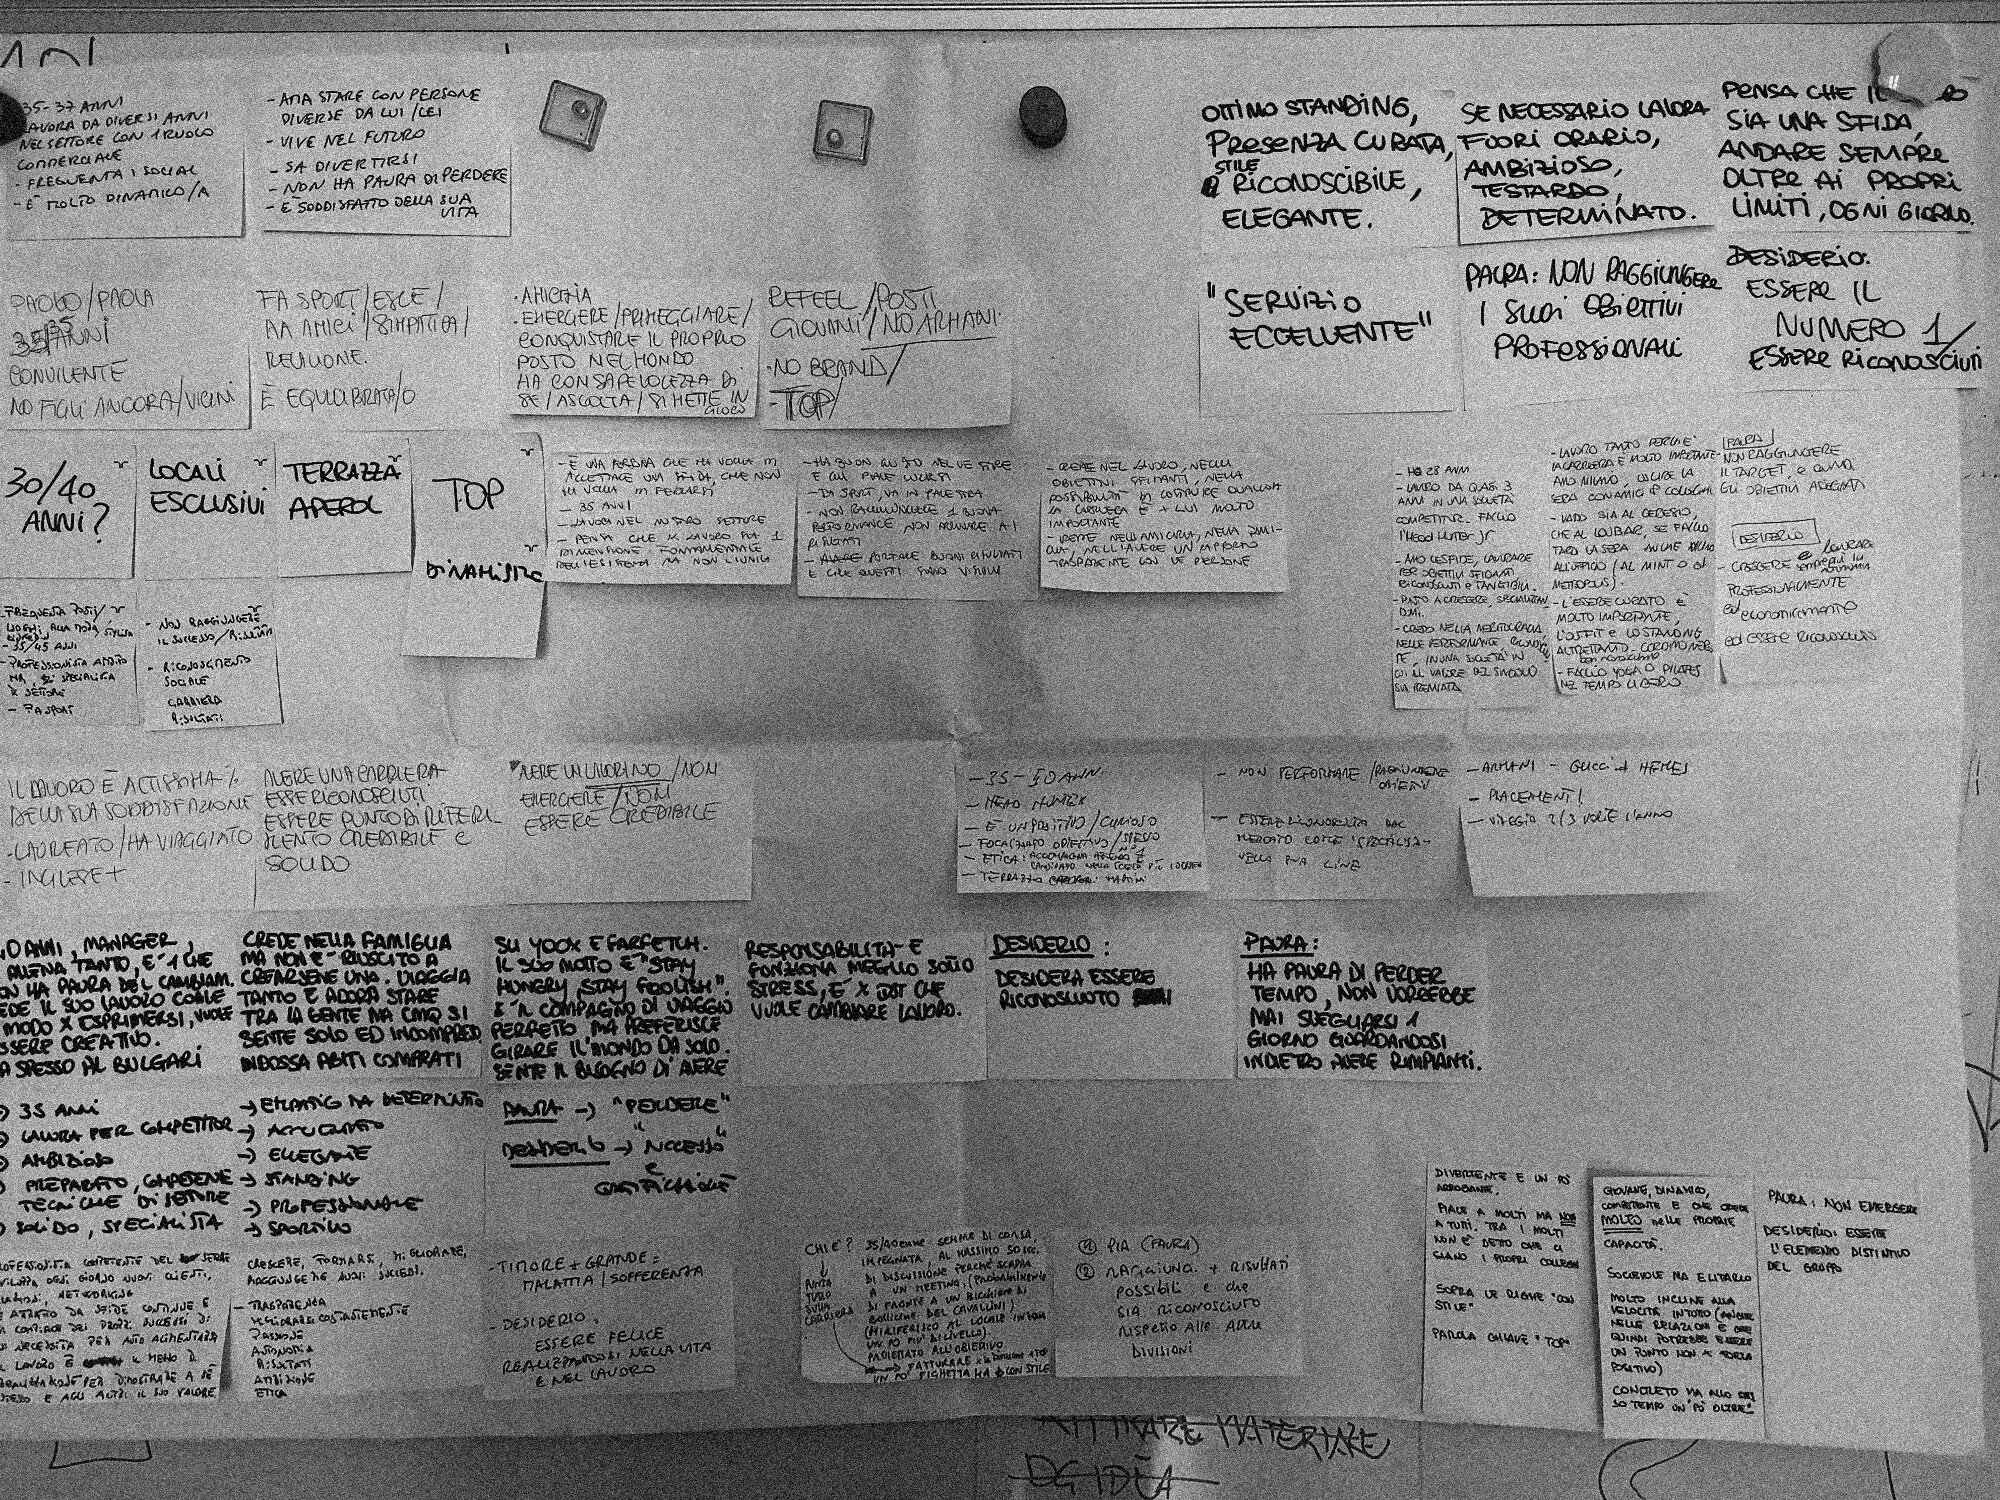 35-37 ANNI
LAVORA DA DIVERSI ANNI
NEL SETTORE CON 1 RUOLO
COMMERCIALE
- FREQUENTA I SOCIAL
- È MOLTO DINAMICO/A
- AMA STARE CON PERSONE
DIVERSE DA LUI/LEI
- VIVE NEL FUTURO
- SA DIVERTIRSI
- NON HA PAURA DI PERDERE
- È SODDISFATTO DELLA SUA
VITA
OTTIMO STANDING,
PRESENZA CURATA,
STILE
RICONOSCIBILE,
ELEGANTE.
SE NECESSARIO LAVORA
FUORI ORARIO,
AMBIZIOSO,
TESTARDO,
DETERMINATO.
PENSA CHE IL
SIA UNA SFIDA,
ANDARE SEMPRE
OLTRE AI PROPRI
LIMITI, OGNI GIORNO.
PAOLO/PAOLA
35 ANNI
CONVIVENTE
NO FIGLI ANCORA/VICINI
FA SPORT/ESCE/
HA AMICI/SIMPATICA/
RELAZIONE.
È EQUILIBRATA/O
· AMICIZIA
· EMERGERE/PRIMEGGIARE/
CONQUISTARE IL PROPRIO
POSTO NEL MONDO
HA CONSAPEVOLEZZA DI
SE/ASCOLTA/SI METTE IN
GIOCO
REFEEL/POSTI
GIOVANI/NO ARMANI
· NO BRAND/
- TOP/
"SERVIZIO
ECCELLENTE"
PAURA: NON RAGGIUNGERE
I SUOI OBIETTIVI
PROFESSIONALI
DESIDERIO:
ESSERE IL
NUMERO 1/
ESSERE RICONOSCIUTI
30/40
ANNI?
LOCALI
ESCLUSIVI
TERRAZZA
APEROL
TOP
DINAMISMO
- È UNA PERSONA CHE HA VOGLIA DI
ACCETTARE UNA SFIDA, CHE NON
HA VOGLIA DI FERMARSI
- 35 ANNI
- LAVORA NEL NOSTRO SETTORE
- PENSA CHE IL LAVORO SIA 1
DIMENSIONE FONDAMENTALE
DELL'ESISTENZA MA NON L'UNICA
- HA BUON GUSTO NEL VESTIRE
E GLI PIACE
- FA SPORT, VA IN PALESTRA
- NON RAGGIUNGERE 1 BUONA
PERFORMANCE NON ARRIVARE AI
RISULTATI
- PORTARE BUONI RISULTATI
E CHE QUESTI SIANO VISIBILI
- CREDE NEL LAVORO, NEGLI
OBIETTIVI SFIDANTI, NELLA
POSSIBILITÀ DI COSTRUIRE QUALCOSA
LA CARRIERA È X LUI MOLTO
IMPORTANTE
- CREDE NELL'AMICIZIA, NELLA FAMI-
GLIA, NELL'AVERE UN RAPPORTO
TRASPARENTE CON LE PERSONE
- HO 28 ANNI
- LAVORO DA QUASI 3
ANNI IN UNA SOCIETÀ
COMPETITOR. FACCIO
L'HEAD HUNTER Jr
- AMO LE SFIDE, LAVORARE
PER OBIETTIVI SFIDANTI
RICONOSCIUTI E TANGIBILI.
- PUNTO A CRESCERE, SPECIALIZZAN
DOMI.
- CREDO NELLA MERITOCRAZIA,
NELLE PERFORMANCE,
IN UNA SOCIETÀ IN
CUI IL VALORE DEL SINGOLO
SIA PREMIATO
- LAVORO TANTO PERCHÉ
LA CARRIERA È MOLTO IMPORTANTE
AMO MILANO, USCIRE LA
SERA CON AMICI E COLLEGHI
- VADO SIA AL CERESIO,
CHE AL LOUBAR, SE FACCIO
TARDI LA SERA ANCHE VICINO
ALL'UFFICIO (AL MINT O AL
METROPOLIS).
- L'ESSERE CURATO È
MOLTO IMPORTANTE,
L'OUTFIT E LO STANDING
ALTRETTANTO.
- FACCIO YOGA O PILATES
NEL TEMPO LIBERO
PAURA
NON RAGGIUNGERE
IL TARGET, E QUINDI
GLI OBIETTIVI ASSEGNATI
DESIDERIO
- CRESCERE E LAVORARE
SEMPRE PIÙ IN
AUTONOMIA
PROFESSIONALMENTE
ed economicamente
ed ESSERE RICONOSCIUTO
- FREQUENTA POSTI/
LUOGHI ALLA MODA
- 35/45 ANNI
- PROFESSIONISTA
- FA SPORT
- NON RAGGIUNGERE
IL SUCCESSO/RISULTATI
- RICONOSCIMENTO
SOCIALE
CARRIERA
RISULTATI
IL LAVORO È ALTISSIMA %
DELLA SUA SODDISFAZIONE
- LAUREATO/HA VIAGGIATO
- INGLESE +
AVERE UNA CARRIERA
ESSERE RICONOSCIUTI
ESSERE PUNTO DI RIFERI-
MENTO CREDIBILE e
SOLIDO
AVERE UN LAVORINO/NON
EMERGERE/NON
ESSERE CREDIBILE
- 35 - 50 ANNI
- HEAD HUNTER
- È UN POSITIVO/CURIOSO
- FOCALIZZATO OBIETTIVO/
- TERRAZZA MARTINI
- NON PERFORMARE/RAGGIUNGERE
OBIETTIVI
- ESSERE RICONOSCIUTA DAL
MERCATO COME "SPECIALIST"
NELLA SUA LINE
- ARMANI - GUCCI - HERMES
- PLACEMENT!
- VIAGGIA 2/3 VOLTE L'ANNO
40 ANNI, MANAGER,
ALLENA TANTO, E' 1 CHE
NON HA PAURA DEL CAMBIAM.
VEDE IL SUO LAVORO COME
MODO X ESPRIMERSI, VUOLE
ESSERE CREATIVO.
VA SPESSO AL BULGARI
CREDE NELLA FAMIGLIA
MA NON E' RIUSCITO A
CREARSENE UNA. VIAGGIA
TANTO E ADORA STARE
TRA LA GENTE MA CMQ SI
SENTE SOLO ED INCOMPRESO
INDOSSA ABITI COMPRATI
SU YOOX E FARFETCH.
IL SUO MOTTO E' "STAY
HUNGRY STAY FOOLISH".
E' IL COMPAGNO DI VIAGGIO
PERFETTO MA PREFERISCE
GIRARE IL MONDO DA SOLO.
SENTE IL BISOGNO DI AVERE
RESPONSABILITA' E
FUNZIONA MEGLIO SOTTO
STRESS, E' X QST CHE
VUOLE CAMBIARE LAVORO.
DESIDERIO:
DESIDERA ESSERE
RICONOSCIUTO
PAURA:
HA PAURA DI PERDER
TEMPO, NON VORREBBE
MAI SVEGLIARSI 1
GIORNO GUARDANDOSI
INDIETRO AVERE RIMPIANTI.
→ 35 ANNI
→ LAVORA PER COMPETITOR
→ AMBIZIOSO
→ PREPARATO, COMPETENZE
TECNICHE DI SETTORE
→ SOLIDO, SPECIALISTA
→ EMPATICO MA DETERMINATO
→ ACCURATO
→ ELEGANTE
→ STANDING
→ PROFESSIONALE
→ SPORTIVO
PAURA → "PERDERE"
DESIDERIO → "SUCCESSO"
E
GRATIFICAZIONE
PROFESSIONISTA COMPETENTE DEL
SVILUPPA OGNI GIORNO NUOVI CLIENTI,
NETWORKING
È ATTRATTO DA SFIDE CONTINUE E
IL LAVORO È IL MEZZO DI
REALIZZAZIONE PER DIMOSTRARE A SÉ
STESSO E AGLI ALTRI IL SUO VALORE
CRESCERE, FORMARSI, MIGLIORARE,
RAGGIUNGERE NUOVI SUCCESSI.
- TRASPARENZA
MIGLIORARSI COSTANTEMENTE
PASSIONE
AUTONOMIA
RISULTATI
AMBIZIONE
ETICA
- TIMORE + GRANDE =
MALATTIA/SOFFERENZA
- DESIDERIO:
ESSERE FELICE
REALIZZANDOSI NELLA VITA
E NEL LAVORO
CHI E'? 35/40ENNE SEMPRE DI CORSA,
IMPEGNATA, AL MASSIMO 50 SEC.
DI DISCUSSIONE PERCHÉ SCAPPA
A UN MEETING, (PROBABILMENTE
DI FRONTE A UN BICCHIERE DI
BOLLICINE DEL CAVALLINI)
(MI RIFERISCO AL LOCALE IN ZONA
UN PO' PIU' DI LIVELLO).
PROIETTATO ALL'OBIETTIVO
FATTURARE
UN PO' FIGHETTA MA CON STILE
PUNTA
TUTTO
SULLA
CARRIERA
① P.IVA (PAURA)
② RAGGIUNG. + RISULTATI
POSSIBILI e che
SIA RICONOSCIUTO
RISPETTO ALLE ALTRE
DIVISIONI
DIVERTENTE E UN PO'
ARROGANTE.
PIACE A MOLTI MA NON
A TUTTI. TRA I MOLTI
NON È DETTO CHE CI
SIANO I PROPRI COLLEGHI
SOPRA LE RIGHE "CON
STILE"
PAROLA CHIAVE "TOP"
GIOVANE, DINAMICO,
COMPETENTE E CHE CREDE
MOLTO NELLE PROPRIE
CAPACITÀ.
SOCIEVOLE MA ELITARIO
MOLTO INCLINE ALLA
VELOCITÀ IN TUTTO (ANCHE
NELLE RELAZIONI E CHE
QUINDI POTREBBE ESSERE
UN PUNTO NON A FORZA
POSITIVO)
CONCRETO MA ALLO STES
SO TEMPO UN "PO' OLTRE"
PAURA: NON EMERGERE
DESIDERIO: ESSERE
L'ELEMENTO DISTINTIVO
DEL GRUPPO